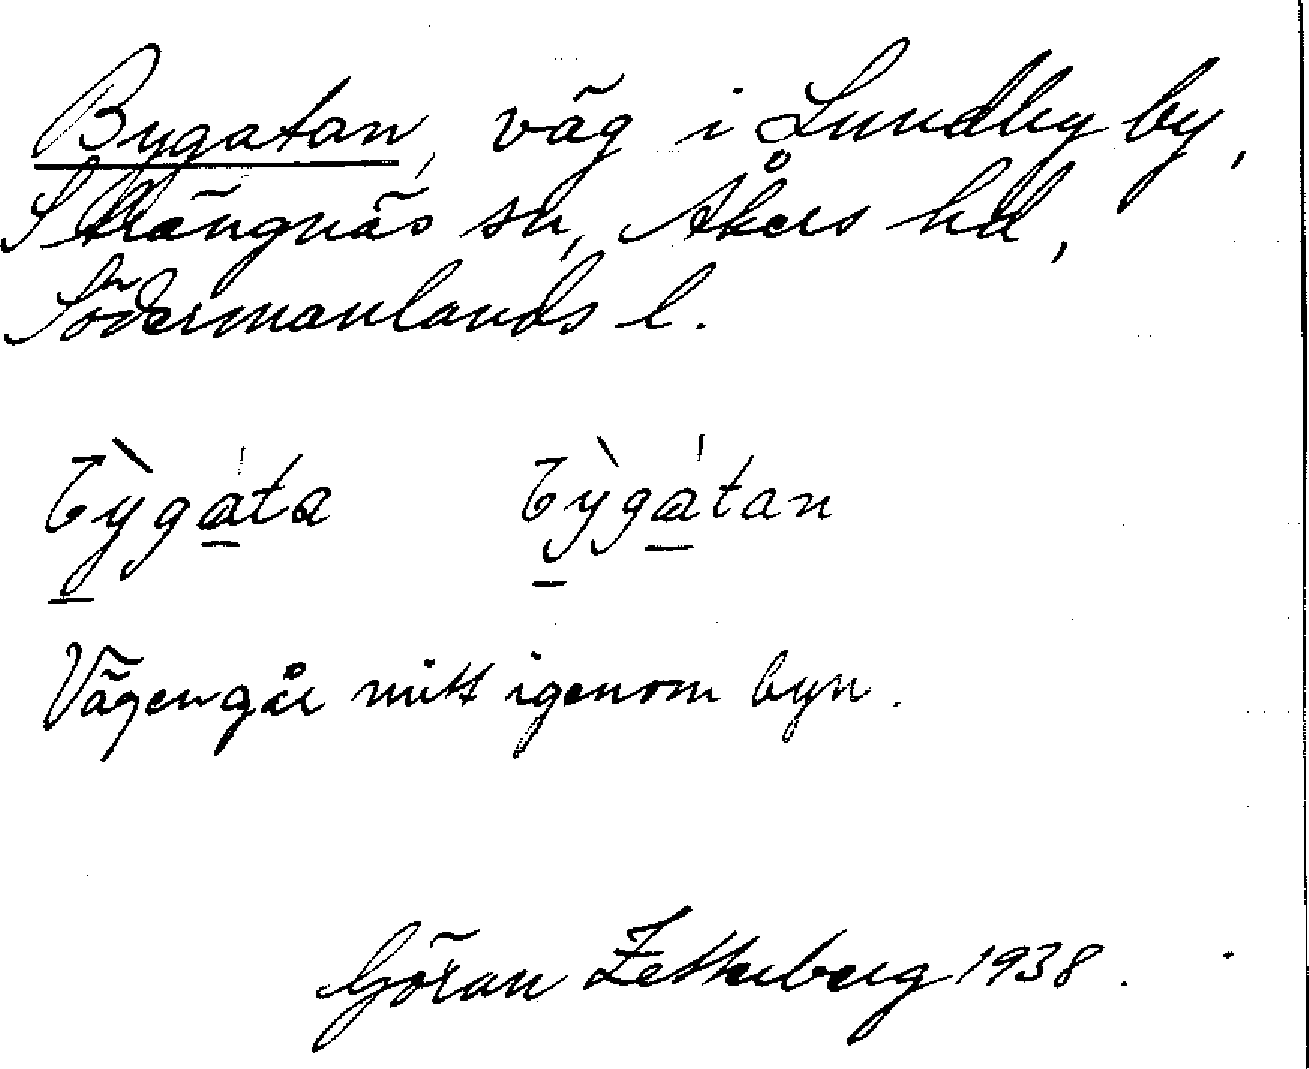 Bygatan, väg i Lundby by,
Strängnäs sn, Åkers hd,
Södermanlands l.
bỳgáta bỳgátan
Vägen går mitt igenom byn.
Göran Zetterberg 1938.